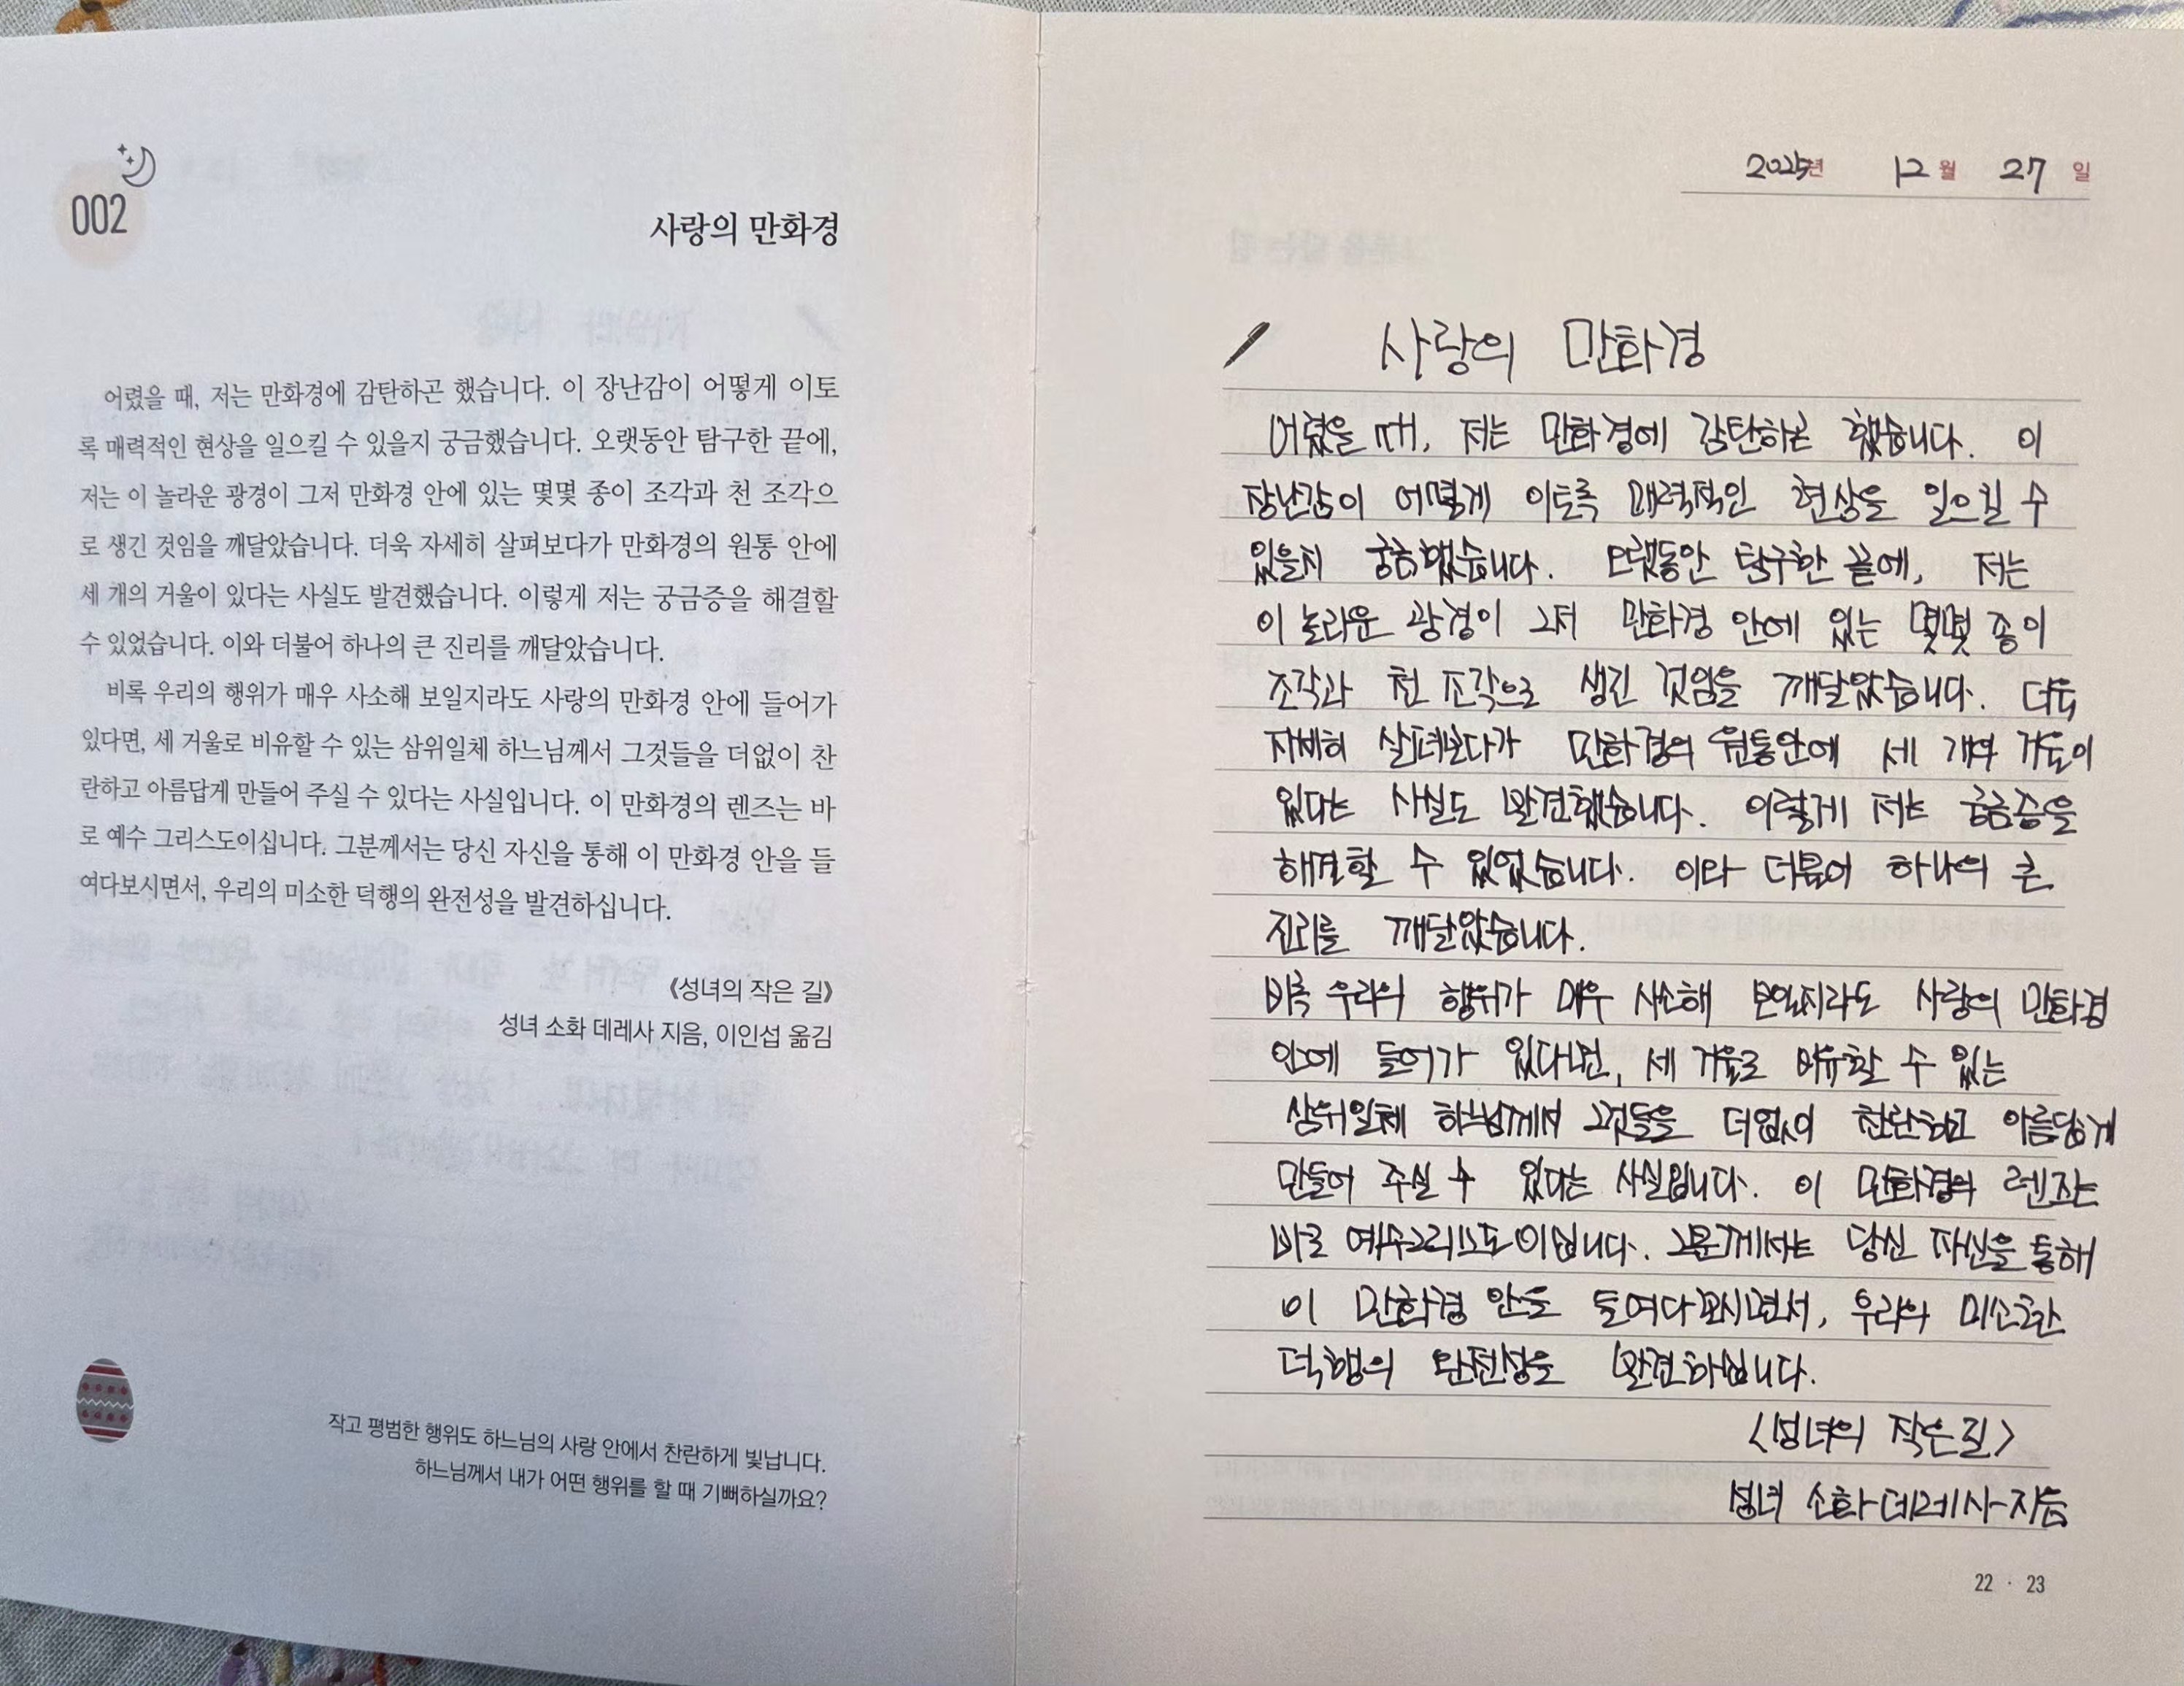 002
사랑의 만화경
어렸을 때, 저는 만화경에 감탄하곤 했습니다. 이 장난감이 어떻게 이토
록 매력적인 현상을 일으킬 수 있을지 궁금했습니다. 오랫동안 탐구한 끝에,
저는 이 놀라운 광경이 그저 만화경 안에 있는 몇몇 종이 조각과 천 조각으
로 생긴 것임을 깨달았습니다. 더욱 자세히 살펴보다가 만화경의 원통 안에
세 개의 거울이 있다는 사실도 발견했습니다. 이렇게 저는 궁금증을 해결할
수 있었습니다. 이와 더불어 하나의 큰 진리를 깨달았습니다.
비록 우리의 행위가 매우 사소해 보일지라도 사랑의 만화경 안에 들어가
있다면, 세 거울로 비유할 수 있는 삼위일체 하느님께서 그것들을 더없이 찬
란하고 아름답게 만들어 주실 수 있다는 사실입니다. 이 만화경의 렌즈는 바
로 예수 그리스도이십니다. 그분께서는 당신 자신을 통해 이 만화경 안을 들
여다보시면서, 우리의 미소한 덕행의 완전성을 발견하십니다.
《성녀의 작은 길》
성녀 소화 데레사 지음, 이인섭 옮김
작고 평범한 행위도 하느님의 사랑 안에서 찬란하게 빛납니다.
하느님께서 내가 어떤 행위를 할 때 기뻐하실까요?
2025년 12월 27일
사랑의 만화경
어렸을 때, 저는 만화경에 감탄하곤 했습니다. 이
장난감이 어떻게 이토록 매력적인 현상을 일으킬 수
있을지 궁금했습니다. 오랫동안 탐구한 끝에, 저는
이 놀라운 광경이 그저 만화경 안에 있는 몇몇 종이
조각과 천 조각으로 생긴 것임을 깨달았습니다. 더욱
자세히 살펴보다가 만화경의 원통안에 세 개의 거울이
있다는 사실도 발견했습니다. 이렇게 저는 궁금증을
해결할 수 있었습니다. 이와 더불어 하나의 큰
진리를 깨달았습니다.
비록 우리의 행위가 매우 사소해 보일지라도 사랑의 만화경
안에 들어가 있다면, 세 거울로 비유할 수 있는
삼위일체 하느님께서 그것들을 더없이 찬란하고 아름답게
만들어 주실 수 있다는 사실입니다. 이 만화경의 렌즈는
바로 예수그리스도이십니다. 그분께서는 당신 자신을 통해
이 만화경 안을 들여다보시면서, 우리의 미소한
덕행의 완전성을 발견하십니다.
<성녀의 작은길>
성녀 소화데레사지음
22 · 23